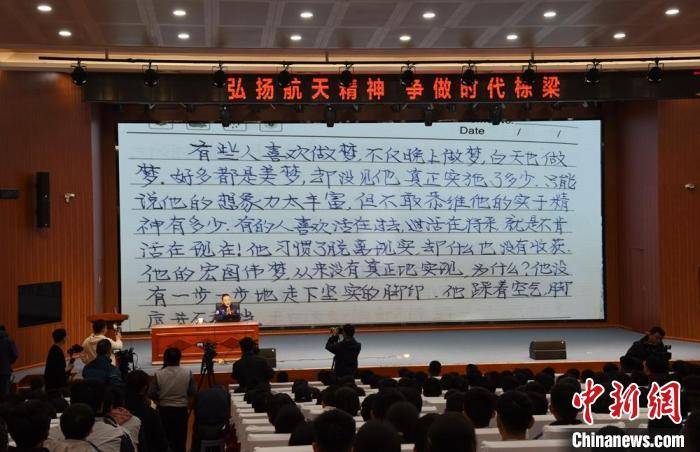 弘扬航天精神 争做时代栋梁
Date / /
有些人喜欢做梦,不仅晚上做梦,白天也做
梦.好多都是美梦,却没见他真正实施了多少.只能
说他的想象力太丰富,但不敢恭维他的实干精
神有多少.有的人喜欢活在过去,或活在将来,就是不肯
活在现在!他习惯了脱离现实,却什么也没有收获.
他的宏图伟梦从来没有真正地实现.为什么?他没
有一步一步地走下坚实的脚印.他踩着空气,脚
中新网
Chinanews.com